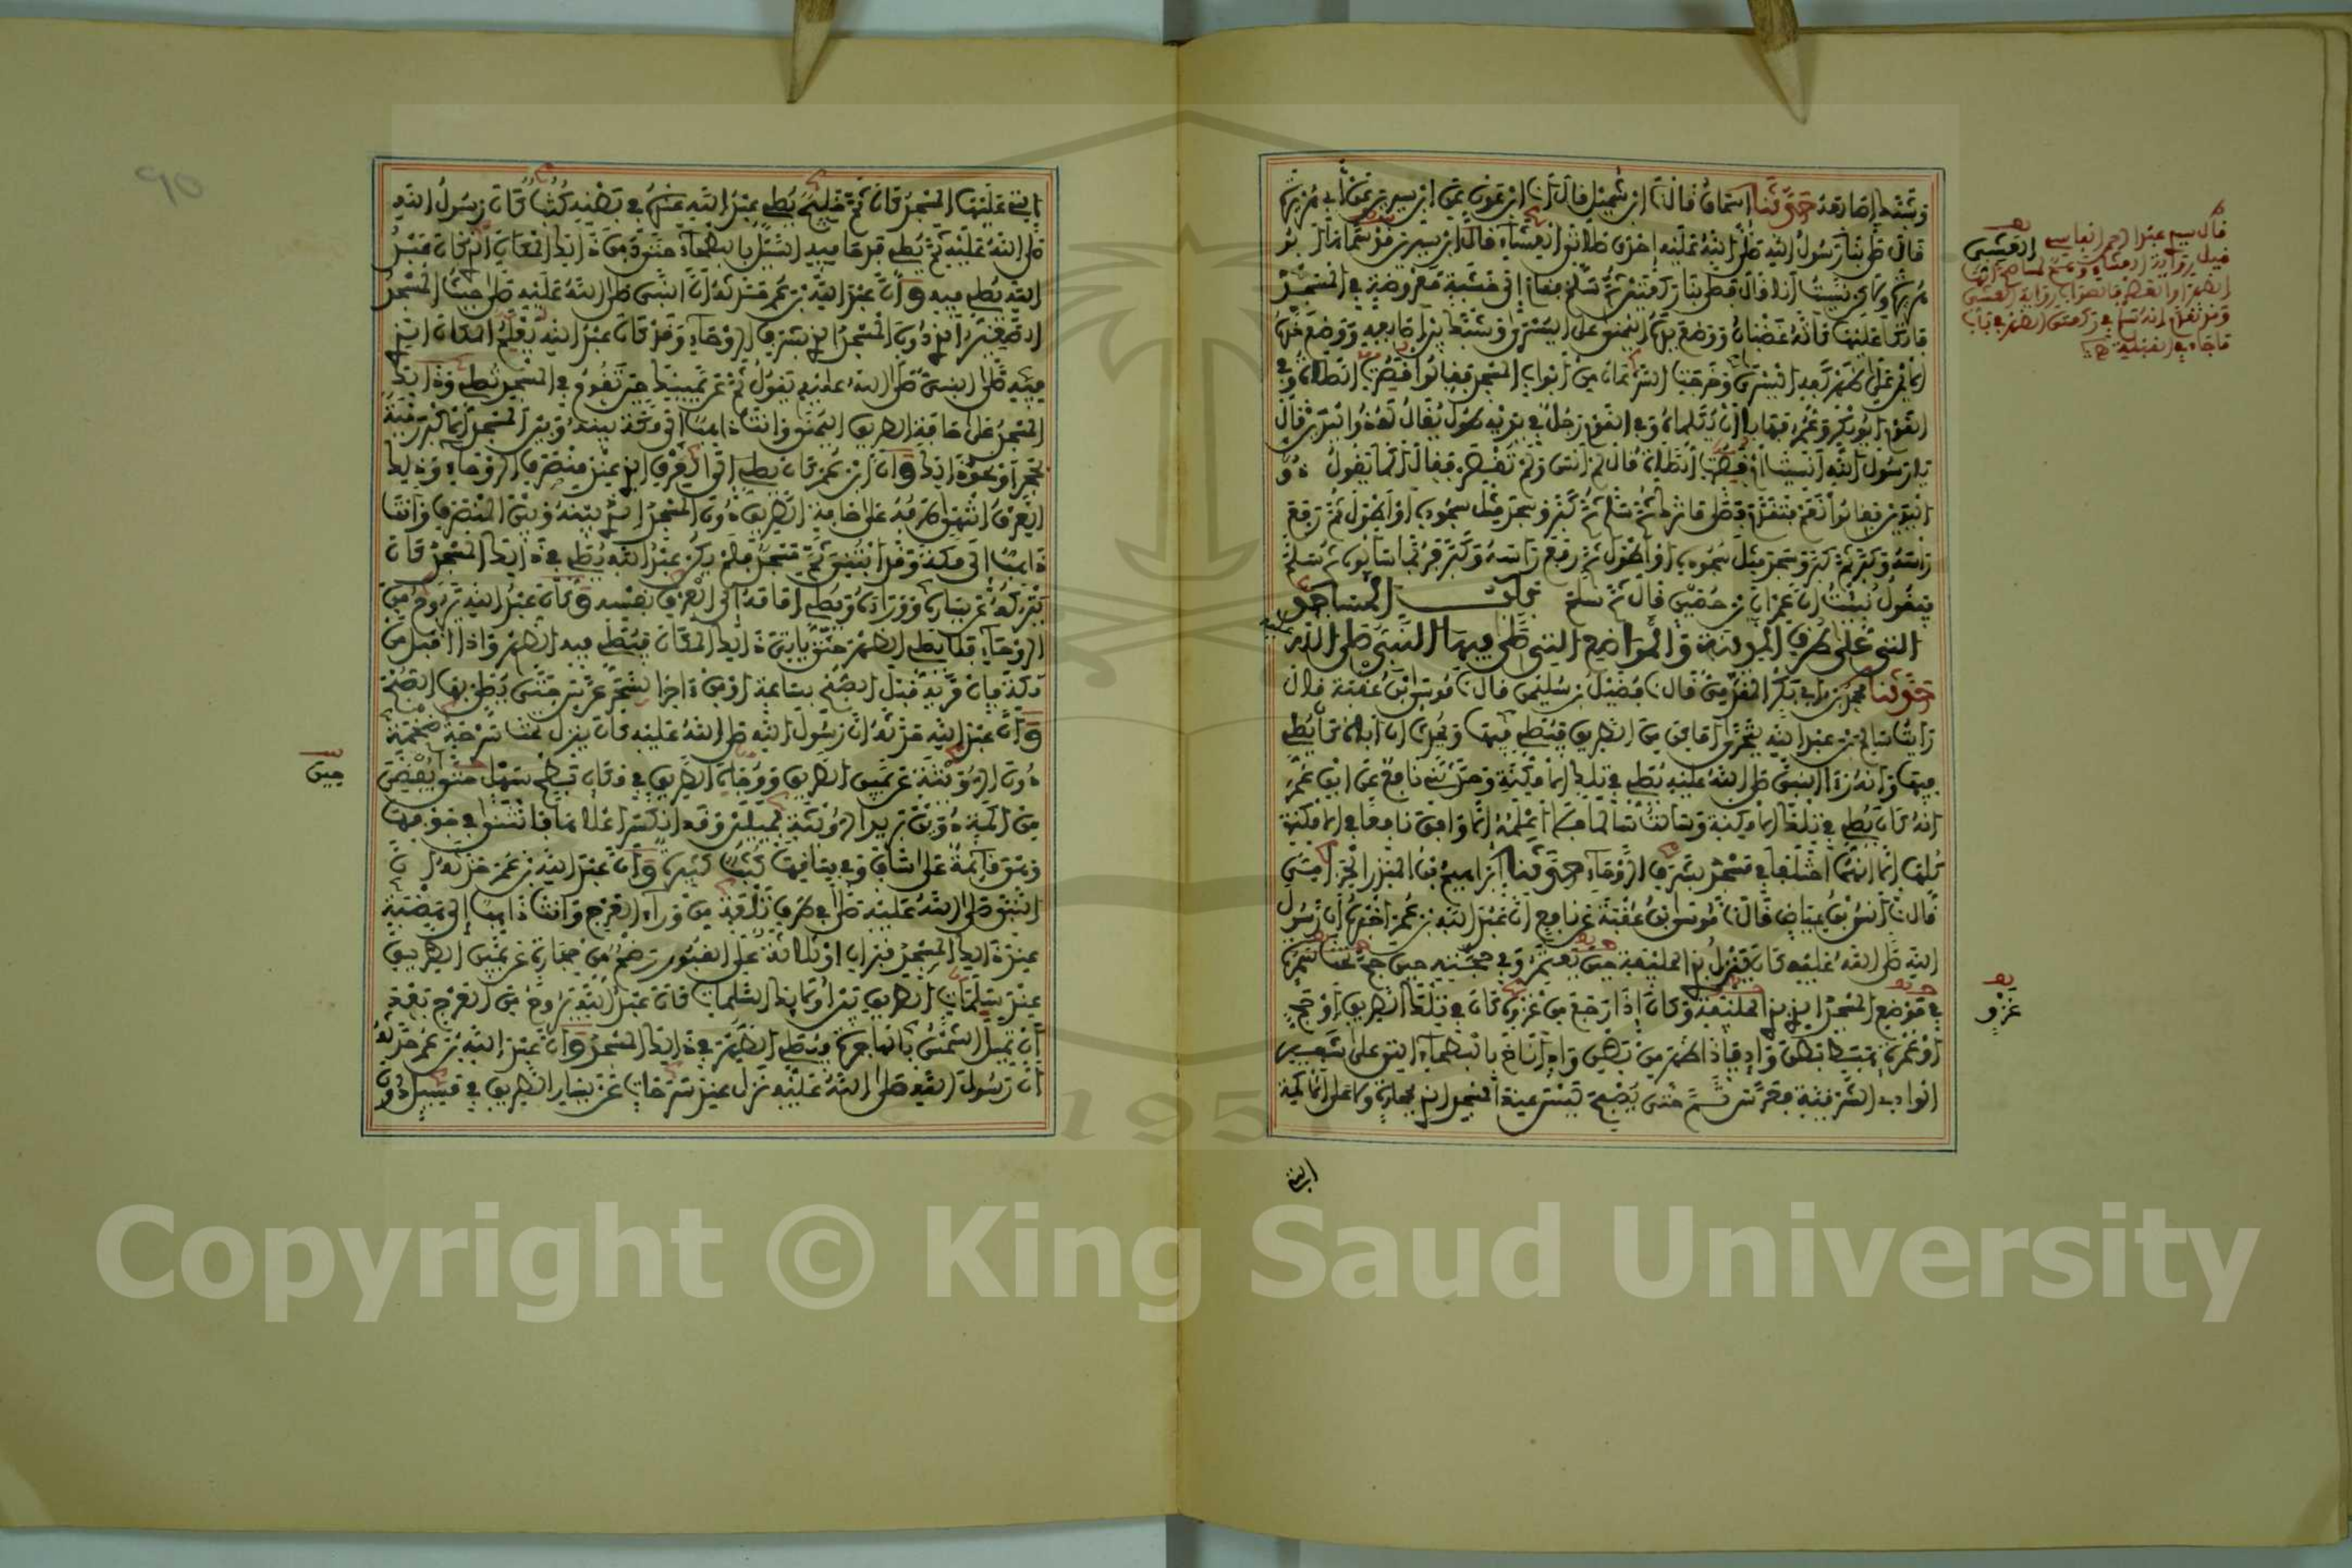 وشبك أصابعه حدثنا إسحاق قال نا ابن شميل قال أنا ابن عون عن ابن سيرين عن أبي هريرة
قال صلى بنا رسول الله صلى الله عليه إحدى صلاتي العشاء قال ابن سيرين قد سماها أبو
هريرة ولكن نسيت أنا قال فصلى بنا ركعتين ثم سلم فقام إلى خشبة معروضة في المسجد
فاتكأ عليها كأنه غضبان ووضع يده اليمنى على اليسرى وشبك بين أصابعه ووضع خده
الأيمن على ظهر كفه اليسرى وخرجت السرعان من أبواب المسجد فقالوا قصرت الصلاة وفي
القوم أبو بكر وعمر فهابا أن يكلماه وفي القوم رجل في يديه طول يقال له ذو اليدين قال
يا رسول الله أنسيت أم قصرت الصلاة قال لم أنس ولم تقصر فقال أكما يقول ذو
اليدين فقالوا نعم فتقدم فصلى ما ترك ثم سلم ثم كبر وسجد مثل سجوده أو أطول ثم رفع
رأسه وكبر ثم كبر وسجد مثل سجوده أو أطول ثم رفع رأسه وكبر فربما سألوه ثم سلم
فيقول نبئت أن عمران بن حصين قال ثم سلم باب المساجد
التي على طرق المدينة والمواضع التي صلى فيها النبي صلى الله
عليه
حدثنا محمد بن أبي بكر المقدمي قال نا فضيل بن سليمن قال نا موسى بن عقبة قال
رأيت سالم بن عبد الله يتحرى أماكن من الطريق فيصلي فيها ويحدث أن أباه كان يصلي
فيها وأنه رأى النبي صلى الله عليه يصلي في تلك الأمكنة وحدثني نافع عن ابن عمر
أنه كان يصلي في تلك الأمكنة وسألت سالما فلا أعلمه إلا وافق نافعا في الأمكنة
كلها إلا أنهما اختلفا في مسجد بشرف الروحاء حدثنا إبراهيم بن المنذر الحزامي
قال نا أنس بن عياض قال نا موسى بن عقبة عن نافع أن عبد الله بن عمر أخبره أن رسول
الله صلى الله عليه كان ينزل بذي الحليفة حين يعتمر وفي حجته حين حج تحت سمرة
في موضع المسجد الذي بذي الحليفة وكان إذا رجع من غزوة كان في تلك الطريق أو حج
أو عمرة هبط بطن واد فإذا ظهر من بطن واد أناخ بالبطحاء التي على شفير
الوادي الشرقية فعرس ثم حتى يصبح ليس عند المسجد الذي بحجارة ولا على الأكمة
التي
العشي
قال
غزو
التي عليها المسجد كان ثم خليج يصلي عبد الله عنده في بطنه كثب كان رسول الله
صلى الله عليه ثم يصلي فدحا فيه السيل بالبطحاء حتى دفن ذلك المكان الذي كان عبد
الله يصلي فيه وأن عبد الله بن عمر حدثه أن النبي صلى الله عليه صلى حيث المسجد
الصغير الذي دون المسجد الذي بشرف الروحاء وقد كان عبد الله يعلم المكان الذي
فيه صلى النبي صلى الله عليه يقول ثم عن يمينك حين تقوم في المسجد تصلي وذلك
المسجد على حافة الطريق اليمنى وأنت ذاهب إلى مكة بينه وبين المسجد الأكبر رمية
بحجر أو نحو ذلك وأن ابن عمر كان يصلي إلى العرق الذي عند منصرف الروحاء وذلك
العرق انتهى طرفه على حافة الطريق دون المسجد الذي بينه وبين المنصرف وأنت
ذاهب إلى مكة وقد ابتني ثم مسجد فلم يكن عبد الله يصلي في ذلك المسجد كان
يتركه عن يساره ووراءه ويصلي أمامه إلى العرق نفسه وكان عبد الله يروح من
الروحاء فلا يصلي الظهر حتى يأتي ذلك المكان فيصلي فيه الظهر وإذا أقبل من
مكة فإن مر به قبل الصبح بساعة أو من آخر السحر عرس حتى يصلي بها الصبح
وأن عبد الله حدثه أن رسول الله صلى الله عليه كان ينزل تحت سرحة ضخمة
دون الرويثة عن يمين الطريق ووجاه الطريق في مكان بطح سهل حتى يفضي
من أكمة دوين بريد الرويثة بميلين وقد انكسر أعلاها فانثنى في جوفها
وهي قائمة على ساق وفي ساقها كثب كثيرة وأن عبد الله بن عمر حدثه أن
النبي صلى الله عليه صلى في طرف تلعة من وراء العرج وأنت ذاهب إلى هضبة
عند ذلك المسجد قبران أو ثلاثة على القبور رضم من حجارة عن يمين الطريق
عند سلمات الطريق بين أولئك السلمات كان عبد الله يروح من العرج بعد
أن تميل الشمس بالهاجرة فيصلي الظهر في ذلك المسجد وأن عبد الله بن عمر حدثه
أن رسول الله صلى الله عليه نزل عند سرحات عن يسار الطريق في مسيل دون
حين
90
1957
Copyright © King Saud University